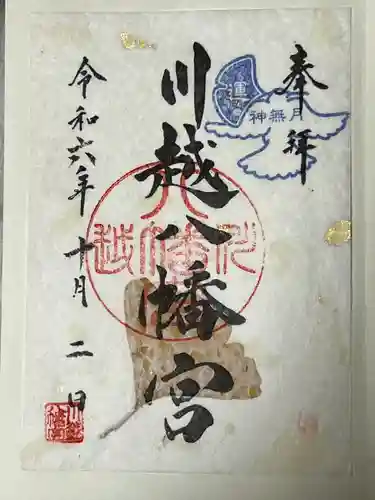 奉拝
神無月
運
川越八幡宮
川越八幡
令和六年十月二日